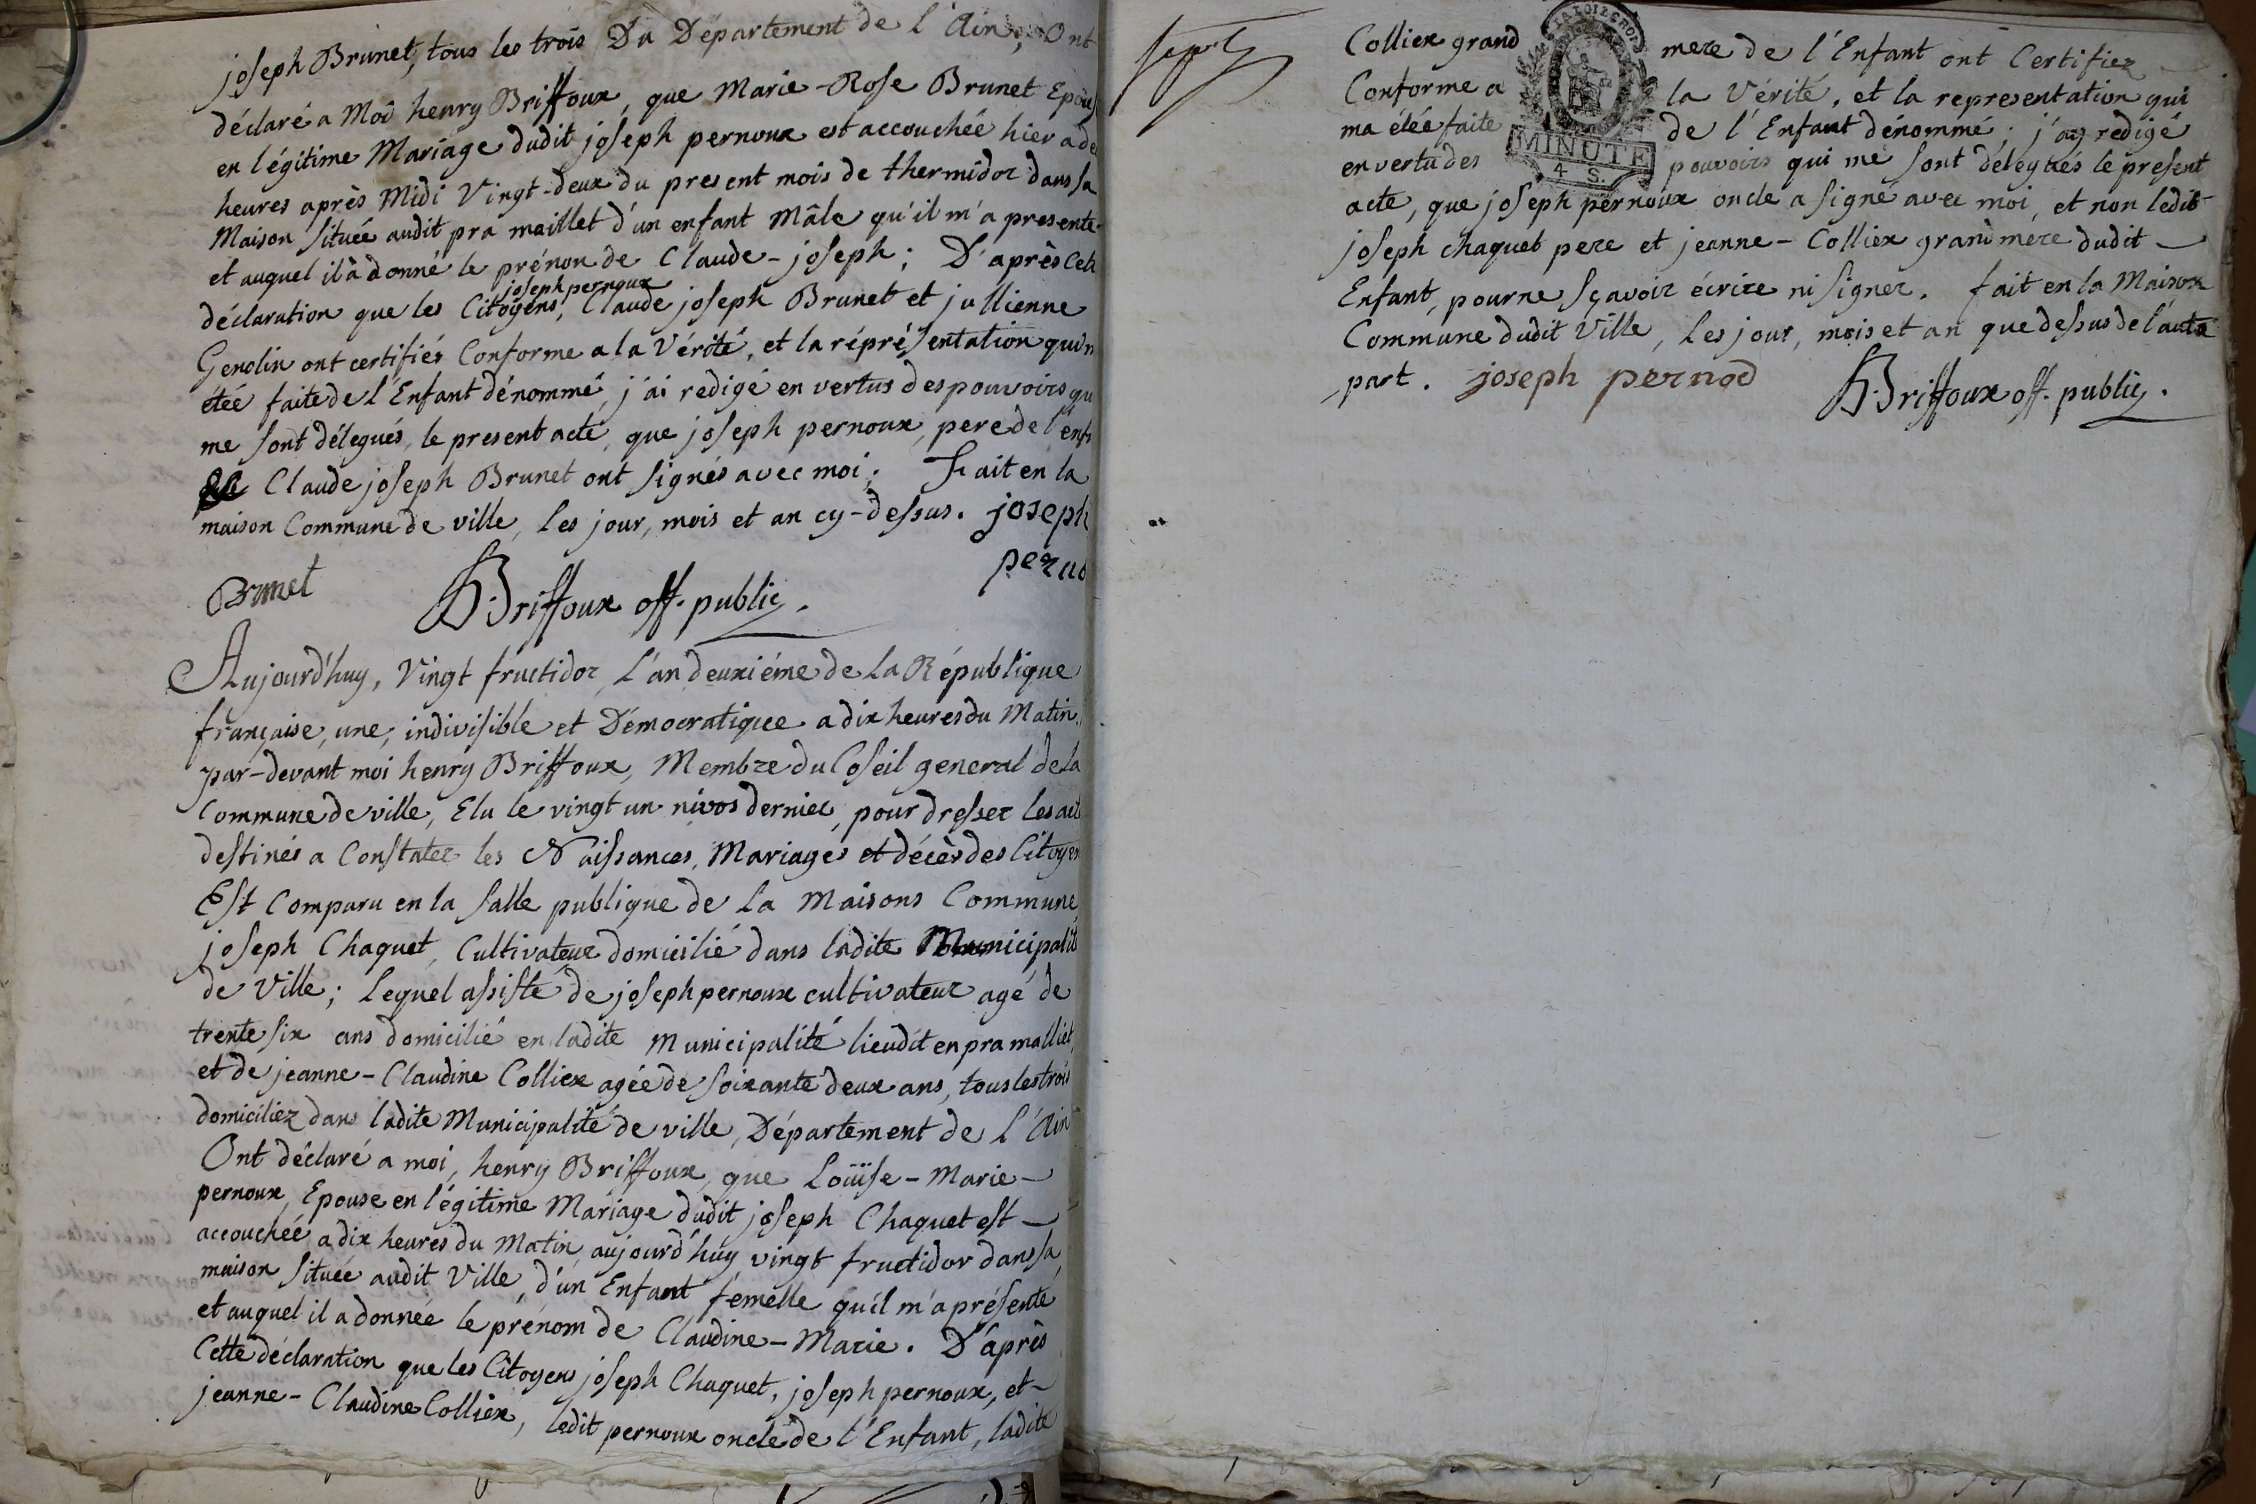 joseph Brunet, tous les trois Du Département de l'Ain, Ont
déclaré a Moi henry Briffoux, que Marie-Rose Brunet Epou
en légitime Mariage dudit joseph pernoux est accouchée hier a de
heures après Midi Vingt-deux du present mois de thermidor dans sa
Maison située audit pra maillet d'un enfant Mâle qu'il m'a presenté
et auquel il à donné le prénom de Claude-joseph; D'après cett
joseph pernoux
déclaration que les Citoyens, Claude joseph Brunet et jullienne
Genolin ont certifiés Conforme a la Vérité, et la réprésentation qui m
étée faite de l'Enfant dénommé, j'ai redigé en vertus des pouvoirs qu
me sont délegués, le present acte, que joseph pernoux, pere de l'enf
Claude joseph Brunet ont signés avec moi; Fait en la
maison Commune de ville, les jour, mois et an cy-dessus. joseph
pernod
Brunet H. Briffoux off. public.
Aujourd'huy, Vingt fructidor, L'an deuxiéme de La République
française, une, indivisible et Démocratique a dix heures du Matin,
par-devant moi henry Briffoux, Membre du Coseil general de La
Commune de ville, Elu le vingt un nivos dernier, pour dresser les act
destinés a Constater les Naissances, Mariages et décès des Citoyen
Est Comparu en la salle publique de La Maisons Commune
joseph Chaquet, Cultivateur domicilié dans ladite Municipalit
de Ville; Lequel assisté de joseph pernoux cultivateur agé de
trente six ans domicilié en ladite municipalité lieudit en pra malliet,
et de jeanne-Claudine Colliex agée de soixante deux ans, tous les trois
domiciliez dans ladite Municipalité de ville, Département de L'Ain
Ont déclaré a moi, henry Briffoux, que Loüise-Marie-
pernoux, Epouse en légitime Mariage dudit joseph Chaquet est
accouchée a dix heures du Matin aujourd'huy vingt fructidor dans sa
maison située audit Ville, d'un Enfant fémélle qu'il m'a présenté
et auquel il a donnée le prénom de Claudine-Marie. D'après
Cette déclaration que les Citoyens joseph Chaquet, joseph pernoux, et-
jeanne-Claudine Colliex, ledit pernoux oncle de l'Enfant, ladite
Colliex grand mere de l'Enfant ont Certifiez
Conforme a la Vérité, et la representation qui
ma étée faite de l'Enfant dénommé; j'ay redigé
en vertu des pouvoirs qui me sont délegués le present
MINUTE
4 S.
acte, que joseph pernoux oncle a signé avec moi, et non ledit
joseph chaquet pere et jeanne-Colliex grandmere dudit
Enfant, pour ne sçavoir écrire ni signer. fait en la Maison
Commune dudit Ville, Les jour, mois et an que dessus de l'autre
part. joseph pernod H. Briffoux off. public.